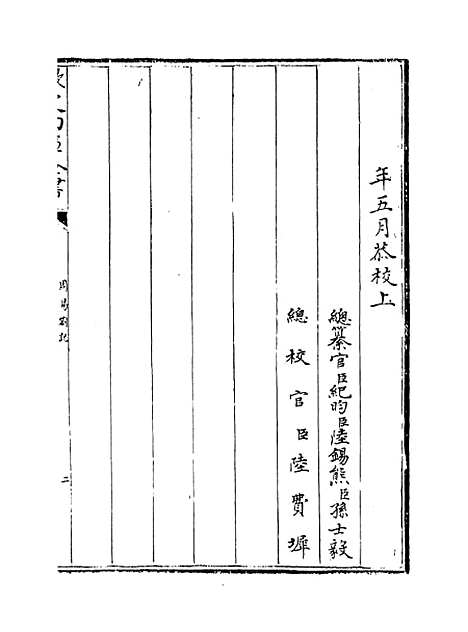 年五月恭校上
總纂官臣紀昀臣陸錫熊臣孫士毅
總校官臣陸費墀
周易劄記
二